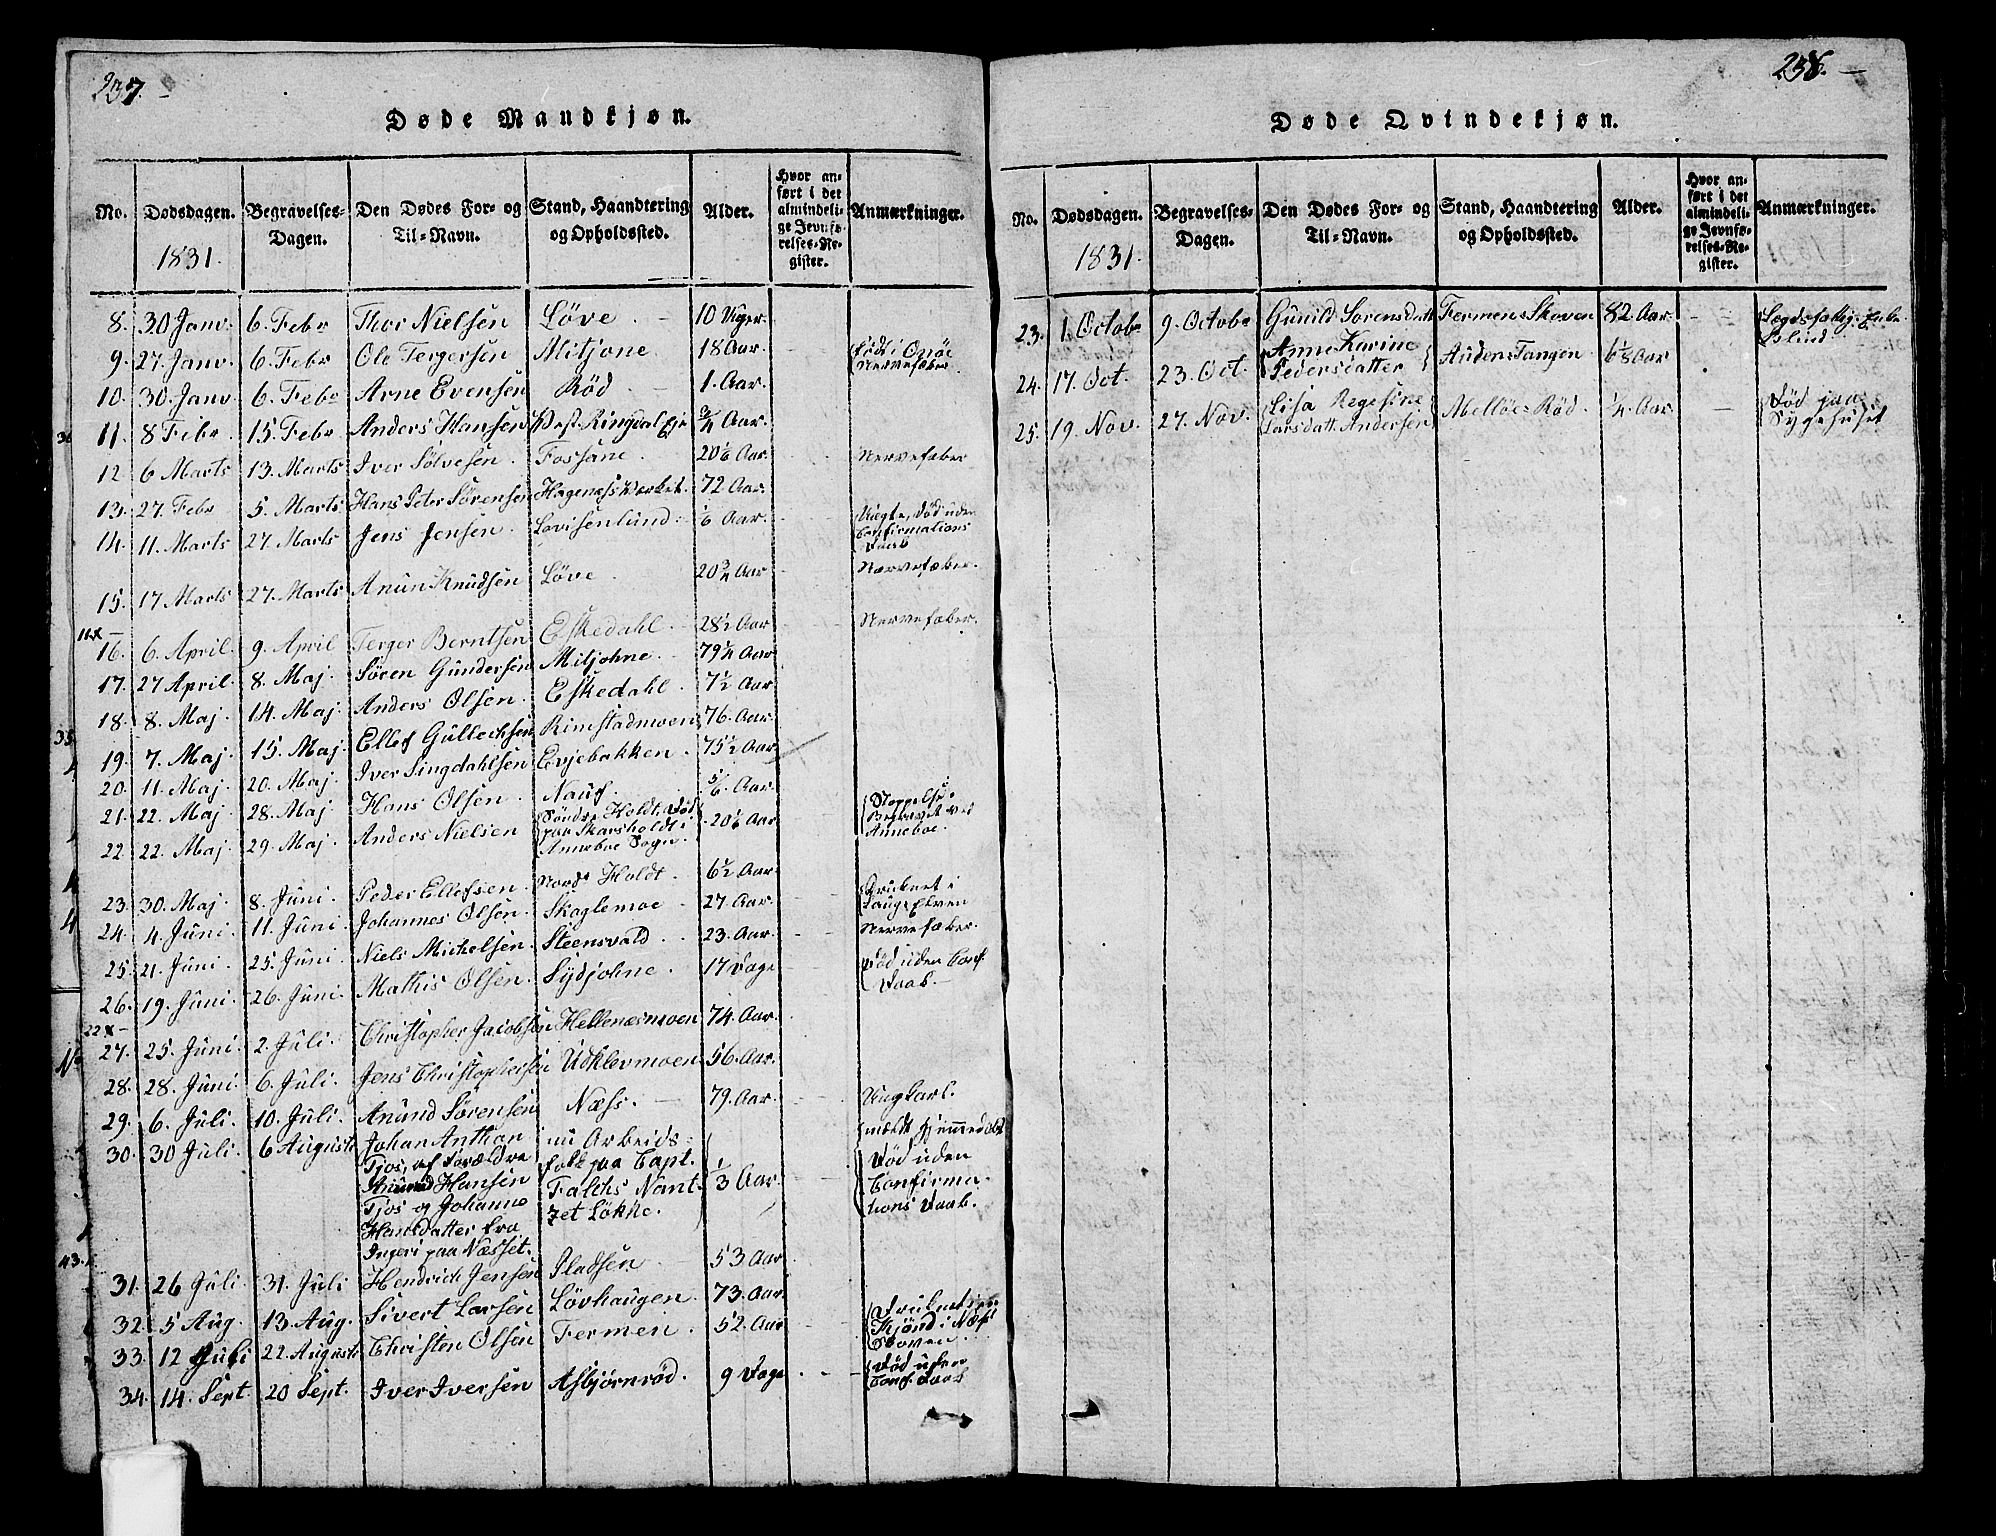 237.
Døde Mandkjøn.
No. Dødsdagen. 1831. Begravelses-Dagen. Den Dødes For- og Til-Navn. Stand, Haandtering og Opholdssted. Alder. Hvor anført i det almindelige Jevnførelses-Register. Anmærkninger.
8. 30 Janv. 6. Febr Thor Nielsen Löve. 10 Uger.
9. 27. Janv. 6. Febr Ole Tergersen Mitjone. 18 Aar. Födt i Onöe Nervefæber.
10. 30. Janv. 6. Febr Arne Evensen Röd 1. Aar.
11. 8 Febr. 15. Febr Anders Hansen Vest. Ringdal Eje 3/4 Aar.
12 6 Marts 13. Marts Iver Sölvesen. Fossane. 20 1/6 Aar. Nervefæber
13. 27. Febr 5. Marts Hans Peter Sörensen Hagenæss Værket. 72 Aar.
14. 11. Marts 27. Marts Jens Jensen. Lovisenlund. 1/6 Aar. Uægte, död uden Confirmations Daab
15. 17 Marts 27. Marts Anun Knudsen Löve. 20 3/4 Aar Nervefæber.
16. 6. April. 9. April Terger Berntsen Eskedahl. 28 1/2 Aar Nervefæber.
17. 27 April. 8. Maj. Sören Gundersen Mitjohne. 79 1/4 Aar
18. 8. Maj. 14. Maj. Anders Olsen. Eskedahl. 7 1/2 Aar
19. 7. Maj. 15. Maj. Ellef Gullechsen Rimstadmoen 76. Aar
20. 11. Maj. 20. Maj. Iver Lingdahlsen Evjebakken. 75 1/2 Aar
21. 22. Maj. 28. Maj. Hans Olsen. Nauf. 5/6. Aar.
22. 22. Maj. 29. Maj. Anders Nielsen Söndre Holdt, Död paa Skarsholdt i Anneboe Sogn. 20 1/6 Aar Begravet ved Anneboe.
23. 30. Maj. 8. Juni. Peder Ellefsen. Nordr Holdt. 6 1/2 Aar.
24. 4. Juni. 11. Juni. Johannes Olsen. Skaglemoe 27. Aar. Druknet i Lauge Elven
25. 21. Juni. 25. Juni. Niels Michelsen. Steensvald. 23. Aar. Nervefæber.
26. 19. Juni. 26. Juni. Mathis Olsen. Sydjohne. 17 Dage Död uden Conf. Daab.
27. 25. Juni. 2. Juli. Christopher Jacobsen Hellenæsmoen 74. Aar.
28. 28. Juni. 6. Juli. Jens Christophersen Udklevmoen 56. Aar.
29. 6. Juli. 10. Juli. Anund Sörensen Næss. 79. Aar. Ungkarl.
30. 30 Juli. 6 Augusti Johan Anthon Tjos, af Forældre Anund Hansen Tjos og Johanne Hansdatter fra Ingeri paa Næsset. nu Arbeidsfolk paa Capt. Falchs Nantzet Lökke. 1/3 Aar. meldt hjemmedöbt Död uden Confirmations Daab.
31. 26 Juli. 31. Juli Hendrich Jensen Pladsen 53 Aar
32. 5 Aug. 13 Aug. Sivert Larsen Lövhaugen. 73. Aar.
33. 12 Juli 22 Augusti Christen Olsen Fermen. 52. Aar Druknet i en Kjönd i Næss Skoven.
34. 14. Sept 20 Sept. Iver Iversen Asbjörnröd. 9 Dage Död uden Conf. Daab
238.
Døde Qvindekjøn.
No. Dødsdagen. 1831. Begravelses-Dagen. Den Dødes For- og Til-Navn. Stand, Haandtering og Opholdssted. Alder. Hvor anført i det almindelige Jevnførelses-Register. Anmærkninger.
23. 1. Octobr 9. Octobr Gunild Sorensdatt Fermen Skoven 82. Aar. Lægdsfattig Enke Blind
24. 17. Oct. 23. Oct. Anne Karine Pedersdatter Auden Tangen 6 1/8 Aar
25. 19. Nov. 27. Nov. Lisa Regesine Larsdatt. Andersen Mellöe Röd. 1/4 Aar. Död paa Sygehuset